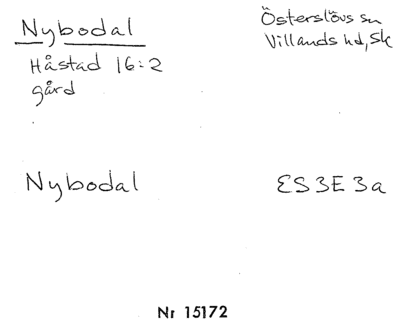 Nybodal
Österslövs sn
Villands hd, Sk
Håstad 16:2
gård
Nybodal
ES 3E 3a
Nr 15172